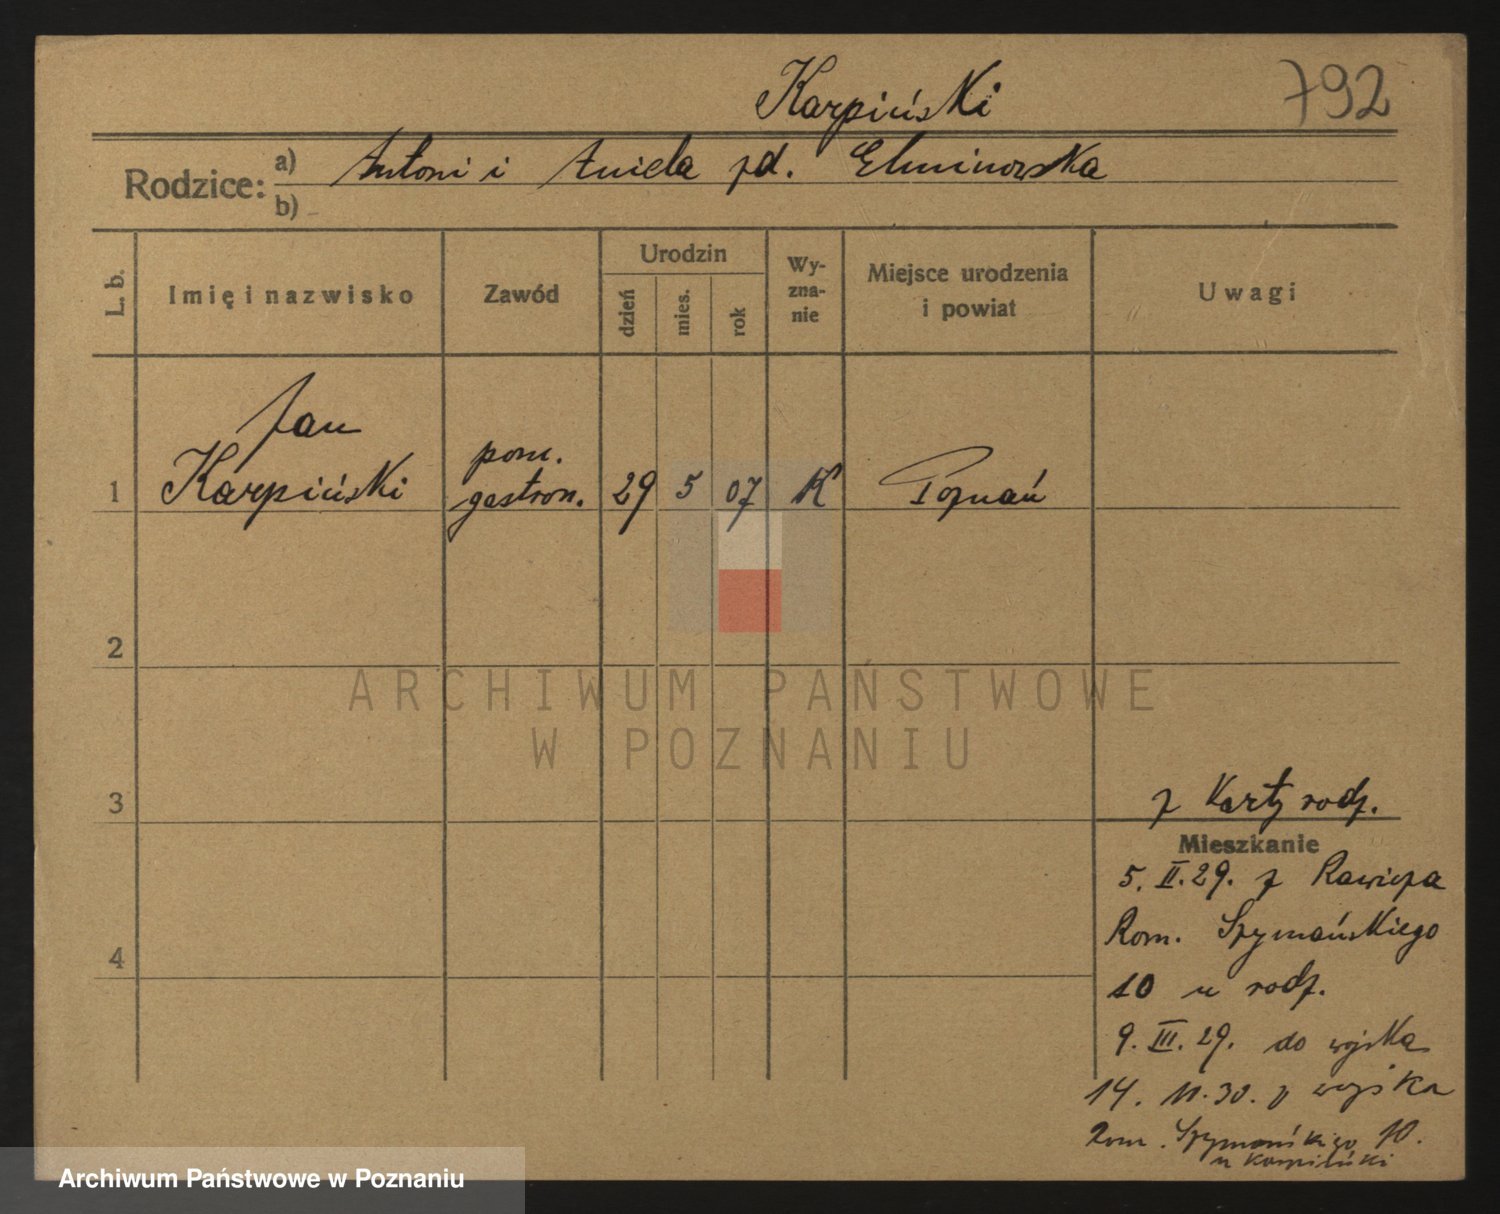 Karpiński
792
Rodzice:
a) Antoni i Aniela zd. Elminowska
b)
L. b.
Imię i nazwisko
Zawód
Urodzin
dzień
mies.
rok
Wy-
zna-
nie
Miejsce urodzenia
i powiat
Uwagi
Jan
Karpiński
pom.
gastron.
1
29 5 07 K Poznań
2
ARCHIWUM PAŃSTWOWE
W POZNANIU
3
z Karty rodz.
Mieszkanie
5. II. 29. z Rawicza
Rom. Szymańskiego
10 u rodz.
4
9. III. 29. do wojska
14. 11. 30. z wojska
Rom. Szymańskiego 10.
u Karpiński
Archiwum Państwowe w Poznaniu